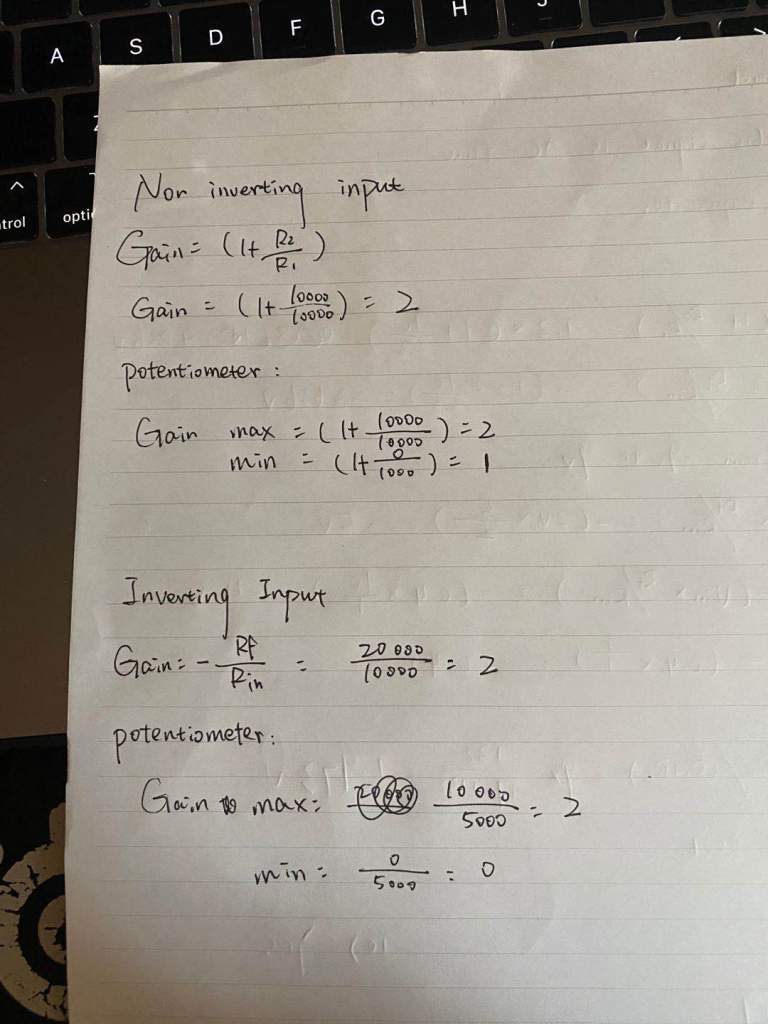 A S D F G H J
Z
^
trol
opti
Non inverting input
Gain = (1+ R2/R1)
Gain = (1+ 10000/10000) = 2
potentiometer :
Gain max = (1+ 10000/10000) = 2
min = (1+ 0/1000) = 1
Inverting Input
Gain = - Rf/Rin = 20 000/10000 = 2
potentiometer :
Gain max = 10 000/5000 = 2
min = 0/5000 = 0